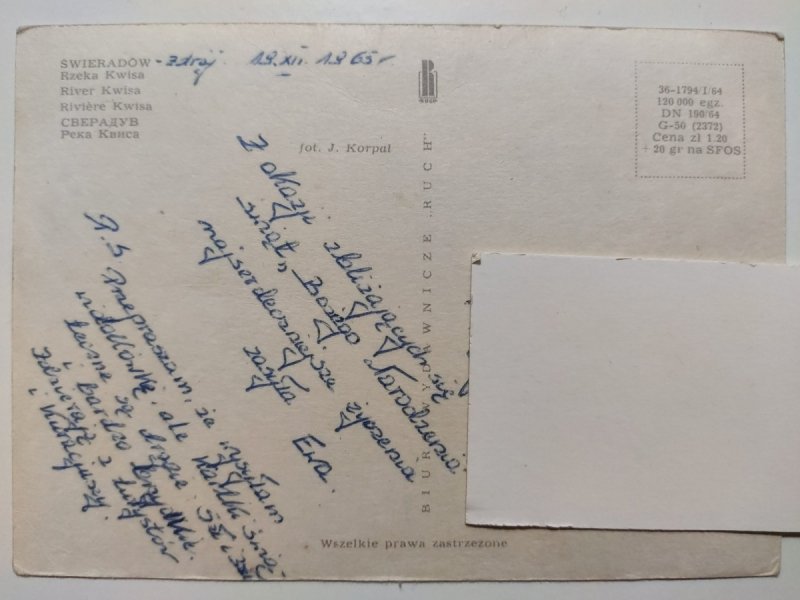 ŚWIERADÓW - Zdrój 19.XII.1965r
Rzeka Kwisa
River Kwisa
Rivière Kwisa
СВЕРАДУВ
Река Квиса
RUCH
36-1794/I/64
120 000 egz.
DN 190/64
G-50 (2372)
Cena zł 1.20
+ 20 gr na SFOS
fot. J. Korpal
BIURO WYDAWNICZE „RUCH"
Z okazji zbliżających się
świąt Bożego Narodzenia
najserdeczniejsze życzenia
zasyła
Ewa.
P.S Przepraszam, że wysyłam
widokówkę, ale kartki świą-
teczne są drogie
i bardzo brzydkie.
i
Wszelkie prawa zastrzeżone